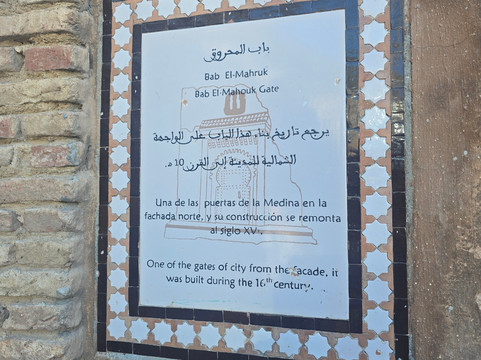 باب المحروق
Bab El-Mahruk
Bab El-Mahouk Gate
يرجع تاريخ بناء هذا الباب على الواجهة
الشمالية للمدينة إلى القرن 10 هـ.
Una de las puertas de la Medina en la
fachada norte, y su construcción se remonta
al siglo
One of the gates of city from the facade, it
was built during the 16th century.